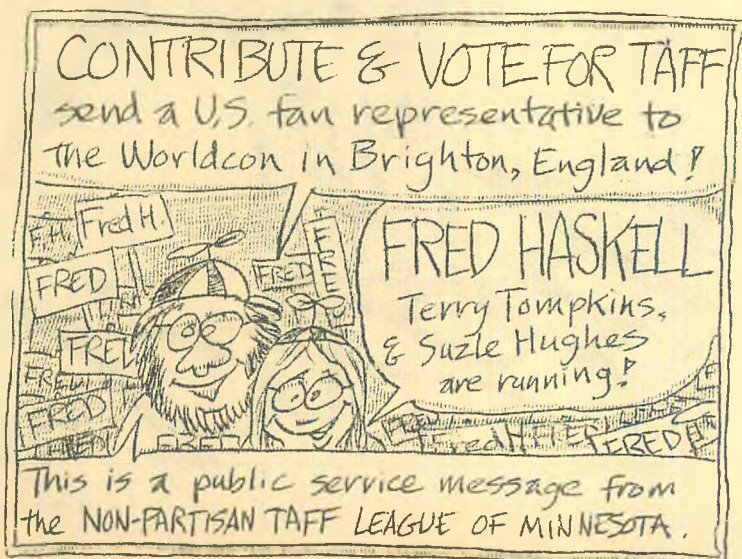 CONTRIBUTE & VOTE FOR TAFF
send a U.S. fan representative to
the Worldcon in Brighton, England!
F.H.
Fred H.
FRED
FRED
FRED
FRED
FRED
FRED HASKELL
Terry Tompkins,
& Suzle Hughes
are running!
FRED
FRED
This is a public service message from
the NON-PARTISAN TAFF LEAGUE OF MINNESOTA.